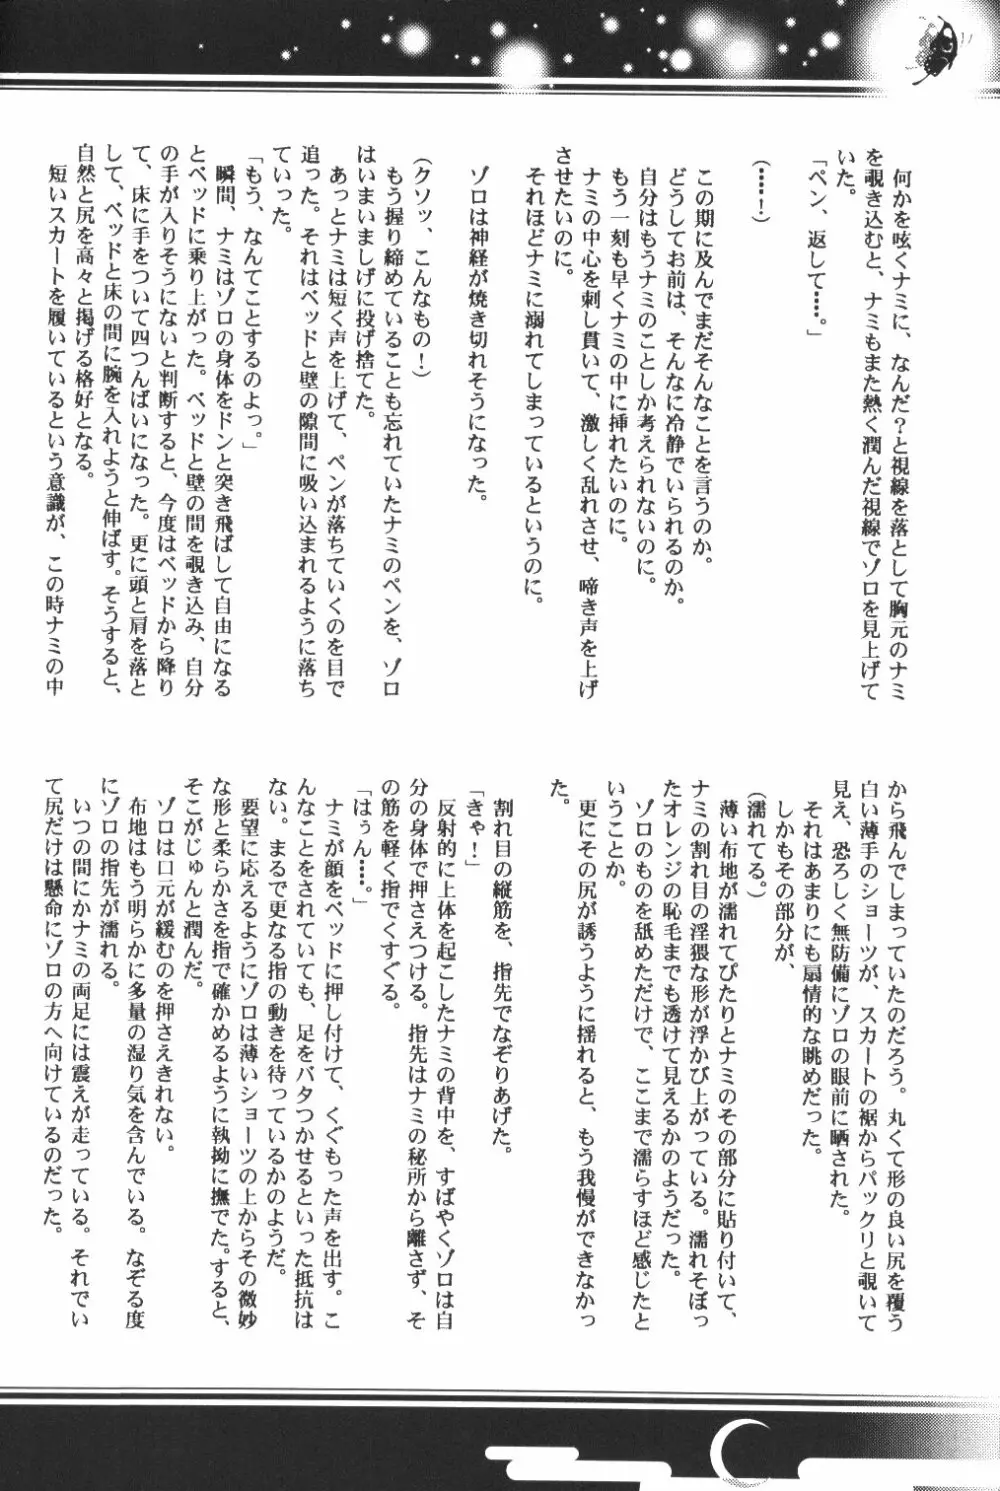 何かを呟くナミに、なんだ？と視線を落として胸元のナミ
を覗き込むと、ナミもまた熱く潤んだ視線でゾロを見上げて
いた。
「ペン、返して……。」
（……！）
この期に及んでまだそんなことを言うのか。
どうしてお前は、そんなに冷静でいられるのか。
自分はもうナミのことしか考えられないのに。
もう一刻も早くナミの中に挿れたいのに。
ナミの中心を刺し貫いて、激しく乱れさせ、啼き声を上げ
させたいのに。
それほどナミに溺れてしまっているというのに。
ゾロは神経が焼き切れそうになった。
（クソッ、こんなもの！）
もう握り締めていることも忘れていたナミのペンを、ゾロ
はいまいましげに投げ捨てた。
あっとナミは短く声を上げて、ペンが落ちていくのを目で
追った。それはベッドと壁の隙間に吸い込まれるように落ち
ていった。
「もう、なんてことするのよっ。」
瞬間、ナミはゾロの身体をドンと突き飛ばして自由になる
とベッドに乗り上がった。ベッドと壁の間を覗き込み、自分
の手が入りそうにないと判断すると、今度はベッドから降り
て、床に手をついて四つんばいになった。更に頭と肩を落と
して、ベッドと床の間に腕を入れようと伸ばす。そうすると、
自然と尻を高々と掲げる格好となる。
短いスカートを履いているという意識が、この時ナミの中
から飛んでしまっていたのだろう。丸くて形の良い尻を覆う
白い薄手のショーツが、スカートの裾からパックリと覗いて
見え、恐ろしく無防備にゾロの眼前に晒された。
それはあまりにも扇情的な眺めだった。
しかもその部分が、
（濡れてる。）
薄い布地が濡れてぴたりとナミのその部分に貼り付いて、
ナミの割れ目の淫猥な形が浮かび上がっている。濡れそぼっ
たオレンジの恥毛までも透けて見えるかのようだった。
ゾロのものを舐めただけで、ここまで濡らすほど感じたと
いうことか。
更にその尻が誘うように揺れると、もう我慢ができなかっ
た。
割れ目の縦筋を、指先でなぞりあげた。
「きゃ！」
反射的に上体を起こしたナミの背中を、すばやくゾロは自
分の身体で押さえつける。指先はナミの秘所から離さず、そ
の筋を軽く指でくすぐる。
「はぅん……。」
ナミが顔をベッドに押し付けて、くぐもった声を出す。こ
んなことをされていても、足をバタつかせるといった抵抗は
ない。まるで更なる指の動きを待っているかのようだ。
要望に応えるようにゾロは薄いショーツの上からその微妙
な形と柔らかさを指で確かめるように執拗に撫でた。すると、
そこがじゅんと潤んだ。
ゾロは口元が緩むのを押さえきれない。
布地はもう明らかに多量の湿り気を含んでいる。なぞる度
にゾロの指先が濡れる。
いつの間にかナミの両足には震えが走っている。それでい
て尻だけは懸命にゾロの方へ向けているのだった。